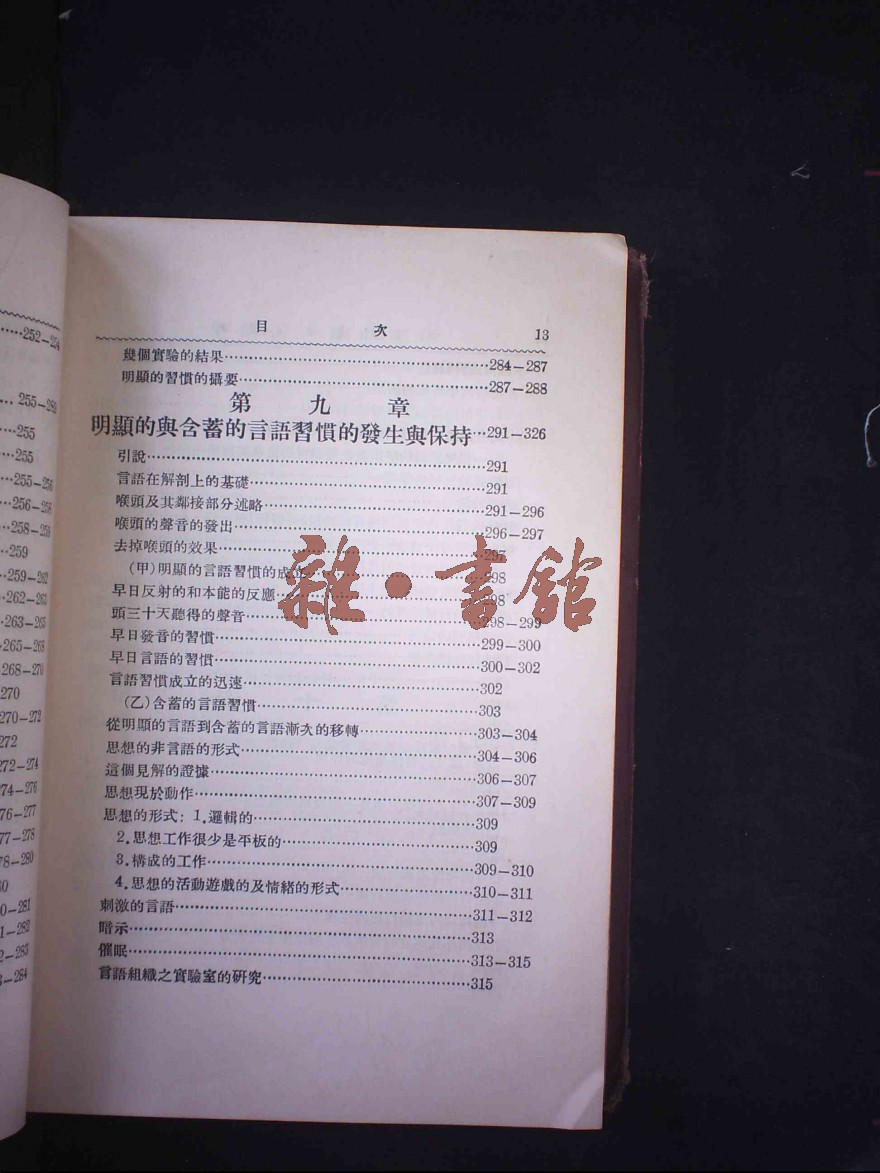 目 次 13
幾個實驗的結果……284—287
明顯的習慣的攝要……287—288
第 九 章
明顯的與含蓄的言語習慣的發生與保持…291—326
引說……291
言語在解剖上的基礎……291
喉頭及其鄰接部分述略……291—296
喉頭的聲音的發出……296—297
去掉喉頭的效果……297
(甲)明顯的言語習慣的成立……298
早日反射的和本能的反應……298
頭三十天聽得的聲音……298—299
早日發音的習慣……299—300
早日言語的習慣……300—302
言語習慣成立的迅速……302
(乙)含蓄的言語習慣……303
從明顯的言語到含蓄的言語漸次的移轉……303—304
思想的非言語的形式……304—306
這個見解的證據……306—307
思想現於動作……307—309
思想的形式：1.邏輯的……309
2.思想工作很少是平板的……309
3.構成的工作……309—310
4.思想的活動遊戲的及情緒的形式……310—311
刺激的言語……311—312
暗示……313
催眠……313—315
言語組織之實驗室的研究……315
雜·書館
255
255
259
270
272